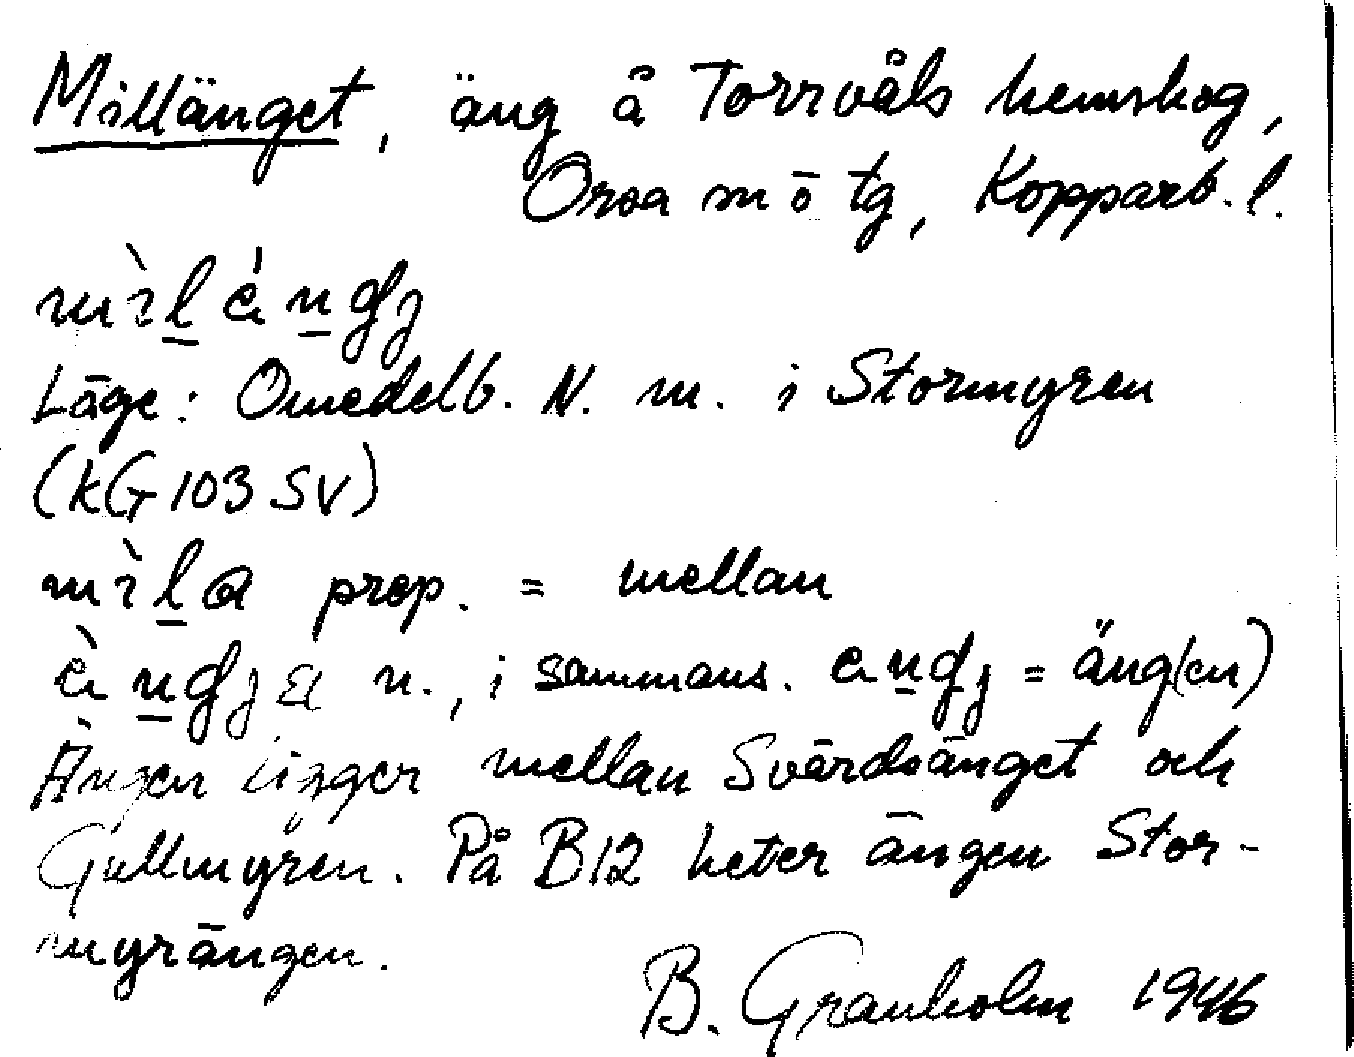 Millänget, äng å Torrvåls hemskog,
Orsa m ō tg, Kopparb. l.
Läge: Omedelb. N. m. i Stormyren
(kG 103 SV)
prep. = mellan
n., i sammans. = äng(en)
Ängen ligger mellan Svärdsänget och
Gullmyren. På B12 heter ängen Stor-
myrängen.
B. Granholm 1946